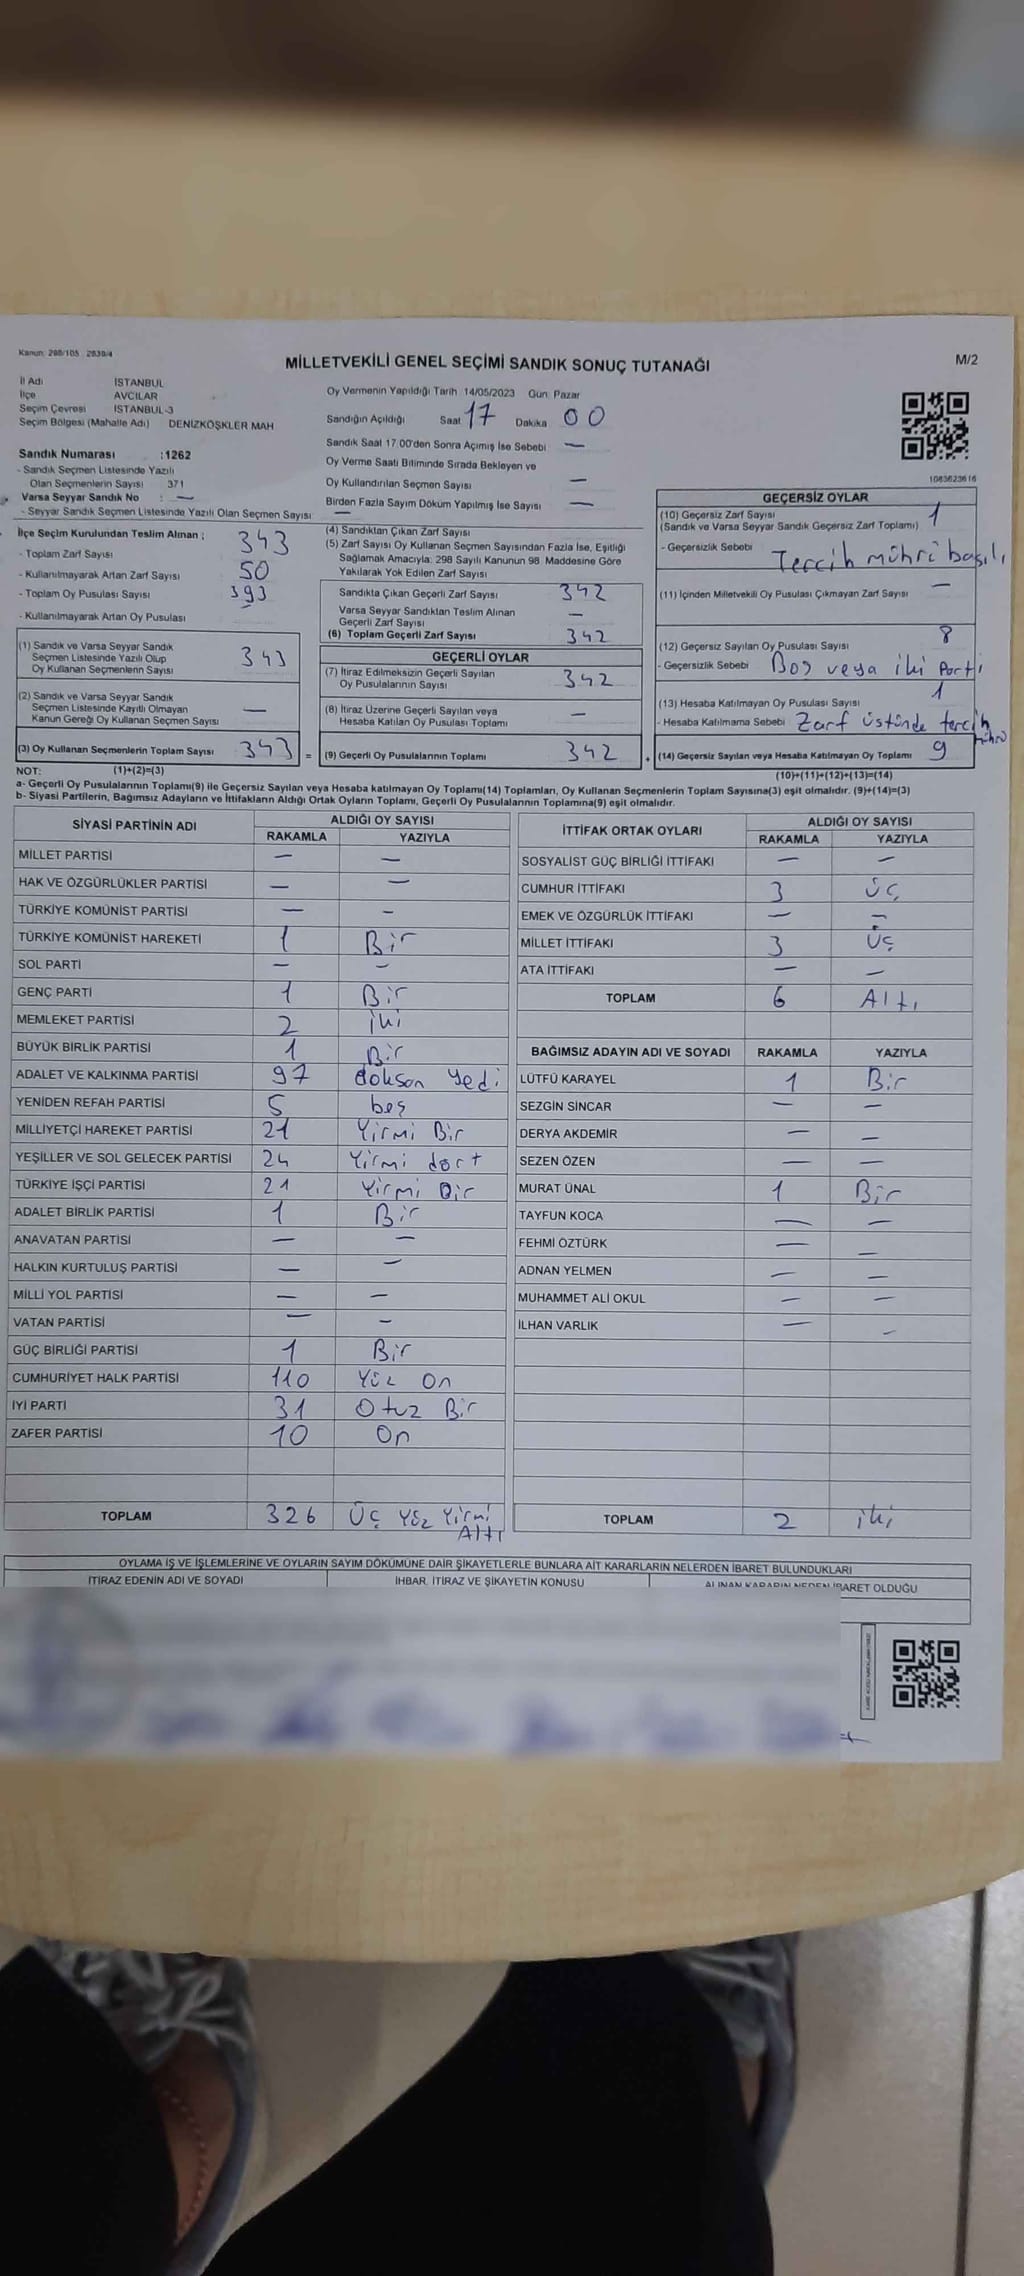 Kanun: 298/105 2839/4
MİLLETVEKİLİ GENEL SEÇİMİ SANDIK SONUÇ TUTANAĞI
M/2
İl Adı İSTANBUL
İlçe AVCILAR
Seçim Çevresi İSTANBUL-3
Seçim Bölgesi (Mahalle Adı) DENİZKÖŞKLER MAH
Sandık Numarası :1262
- Sandık Seçmen Listesinde Yazılı
Olan Seçmenlerin Sayısı 371
Varsa Seyyar Sandık No : —
- Seyyar Sandık Seçmen Listesinde Yazılı Olan Seçmen Sayısı: —
İlçe Seçim Kurulundan Teslim Alınan ; 343
- Toplam Zarf Sayısı
- Kullanılmayarak Artan Zarf Sayısı 50
- Toplam Oy Pusulası Sayısı 393
- Kullanılmayarak Artan Oy Pusulası
(1) Sandık ve Varsa Seyyar Sandık
Seçmen Listesinde Yazılı Olup
Oy Kullanan Seçmenlerin Sayısı 343
(2) Sandık ve Varsa Seyyar Sandık
Seçmen Listesinde Kayıtlı Olmayan
Kanun Gereği Oy Kullanan Seçmen Sayısı —
(3) Oy Kullanan Seçmenlerin Toplam Sayısı 343 =
Oy Vermenin Yapıldığı Tarih 14/05/2023 Gün: Pazar
Sandığın Açıldığı Saat 17 Dakika 00
Sandık Saat 17.00'den Sonra Açımış İse Sebebi —
Oy Verme Saati Bitiminde Sırada Bekleyen ve
Oy Kullandırılan Seçmen Sayısı —
Birden Fazla Sayım Döküm Yapılmış İse Sayısı —
(4) Sandıktan Çıkan Zarf Sayısı
(5) Zarf Sayısı Oy Kullanan Seçmen Sayısından Fazla İse, Eşitliği
Sağlamak Amacıyla; 298 Sayılı Kanunun 98. Maddesine Göre
Yakılarak Yok Edilen Zarf Sayısı
Sandıkta Çıkan Geçerli Zarf Sayısı 342
Varsa Seyyar Sandıktan Teslim Alınan
Geçerli Zarf Sayısı —
(6) Toplam Geçerli Zarf Sayısı 342
GEÇERLİ OYLAR
(7) İtiraz Edilmeksizin Geçerli Sayılan
Oy Pusulalarının Sayısı 342
(8) İtiraz Üzerine Geçerli Sayılan veya
Hesaba Katılan Oy Pusulası Toplamı —
(9) Geçerli Oy Pusulalarının Toplamı 342 +
1083623616
GEÇERSİZ OYLAR
(10) Geçersiz Zarf Sayısı 1
(Sandık ve Varsa Seyyar Sandık Geçersiz Zarf Toplamı)
- Geçersizlik Sebebi Tercih mührü basılı
(11) İçinden Milletvekili Oy Pusulası Çıkmayan Zarf Sayısı —
(12) Geçersiz Sayılan Oy Pusulası Sayısı 8
- Geçersizlik Sebebi Boş veya iki Parti
(13) Hesaba Katılmayan Oy Pusulası Sayısı 1
- Hesaba Katılmama Sebebi Zarf üstünde tercih mührü
(14) Geçersiz Sayılan veya Hesaba Katılmayan Oy Toplamı 9
(10)+(11)+(12)+(13)=(14)
NOT: (1)+(2)=(3)
a- Geçerli Oy Pusulalarının Toplamı(9) ile Geçersiz Sayılan veya Hesaba katılmayan Oy Toplamı(14) Toplamları, Oy Kullanan Seçmenlerin Toplam Sayısına(3) eşit olmalıdır. (9)+(14)=(3)
b- Siyasi Partilerin, Bağımsız Adayların ve İttifakların Aldığı Ortak Oyların Toplamı, Geçerli Oy Pusulalarının Toplamına(9) eşit olmalıdır.
SİYASİ PARTİNİN ADI ALDIĞI OY SAYISI
RAKAMLA YAZIYLA
MİLLET PARTİSİ — —
HAK VE ÖZGÜRLÜKLER PARTİSİ — —
TÜRKİYE KOMÜNİST PARTİSİ — —
TÜRKİYE KOMÜNİST HAREKETİ 1 Bir
SOL PARTİ — —
GENÇ PARTİ 1 Bir
MEMLEKET PARTİSİ 2 iki
BÜYÜK BİRLİK PARTİSİ 1 Bir
ADALET VE KALKINMA PARTİSİ 97 doksan yedi
YENİDEN REFAH PARTİSİ 5 beş
MİLLİYETÇİ HAREKET PARTİSİ 21 Yirmi Bir
YEŞİLLER VE SOL GELECEK PARTİSİ 24 Yirmi dört
TÜRKİYE İŞÇİ PARTİSİ 21 Yirmi Bir
ADALET BİRLİK PARTİSİ 1 Bir
ANAVATAN PARTİSİ — —
HALKIN KURTULUŞ PARTİSİ — —
MİLLİ YOL PARTİSİ — —
VATAN PARTİSİ — —
GÜÇ BİRLİĞİ PARTİSİ 1 Bir
CUMHURİYET HALK PARTİSİ 110 Yüz On
İYİ PARTİ 31 Otuz Bir
ZAFER PARTİSİ 10 On
TOPLAM 326 Üç Yüz Yirmi
Altı
İTTİFAK ORTAK OYLARI ALDIĞI OY SAYISI
RAKAMLA YAZIYLA
SOSYALİST GÜÇ BİRLİĞİ İTTİFAKI — —
CUMHUR İTTİFAKI 3 Üç
EMEK VE ÖZGÜRLÜK İTTİFAKI — —
MİLLET İTTİFAKI 3 Üç
ATA İTTİFAKI — —
TOPLAM 6 Altı
BAĞIMSIZ ADAYIN ADI VE SOYADI RAKAMLA YAZIYLA
LÜTFÜ KARAYEL 1 Bir
SEZGİN SİNCAR — —
DERYA AKDEMİR — —
SEZEN ÖZEN — —
MURAT ÜNAL 1 Bir
TAYFUN KOCA — —
FEHMİ ÖZTÜRK — —
ADNAN YELMEN — —
MUHAMMET ALİ OKUL — —
İLHAN VARLIK — —
TOPLAM 2 iki
OYLAMA İŞ VE İŞLEMLERİNE VE OYLARIN SAYIM DÖKÜMÜNE DAİR ŞİKAYETLERLE BUNLARA AİT KARARLARIN NELERDEN İBARET BULUNDUKLARI
İTİRAZ EDENİN ADI VE SOYADI İHBAR, İTİRAZ VE ŞİKAYETİN KONUSU ALINAN KARARIN NEDEN İBARET OLDUĞU